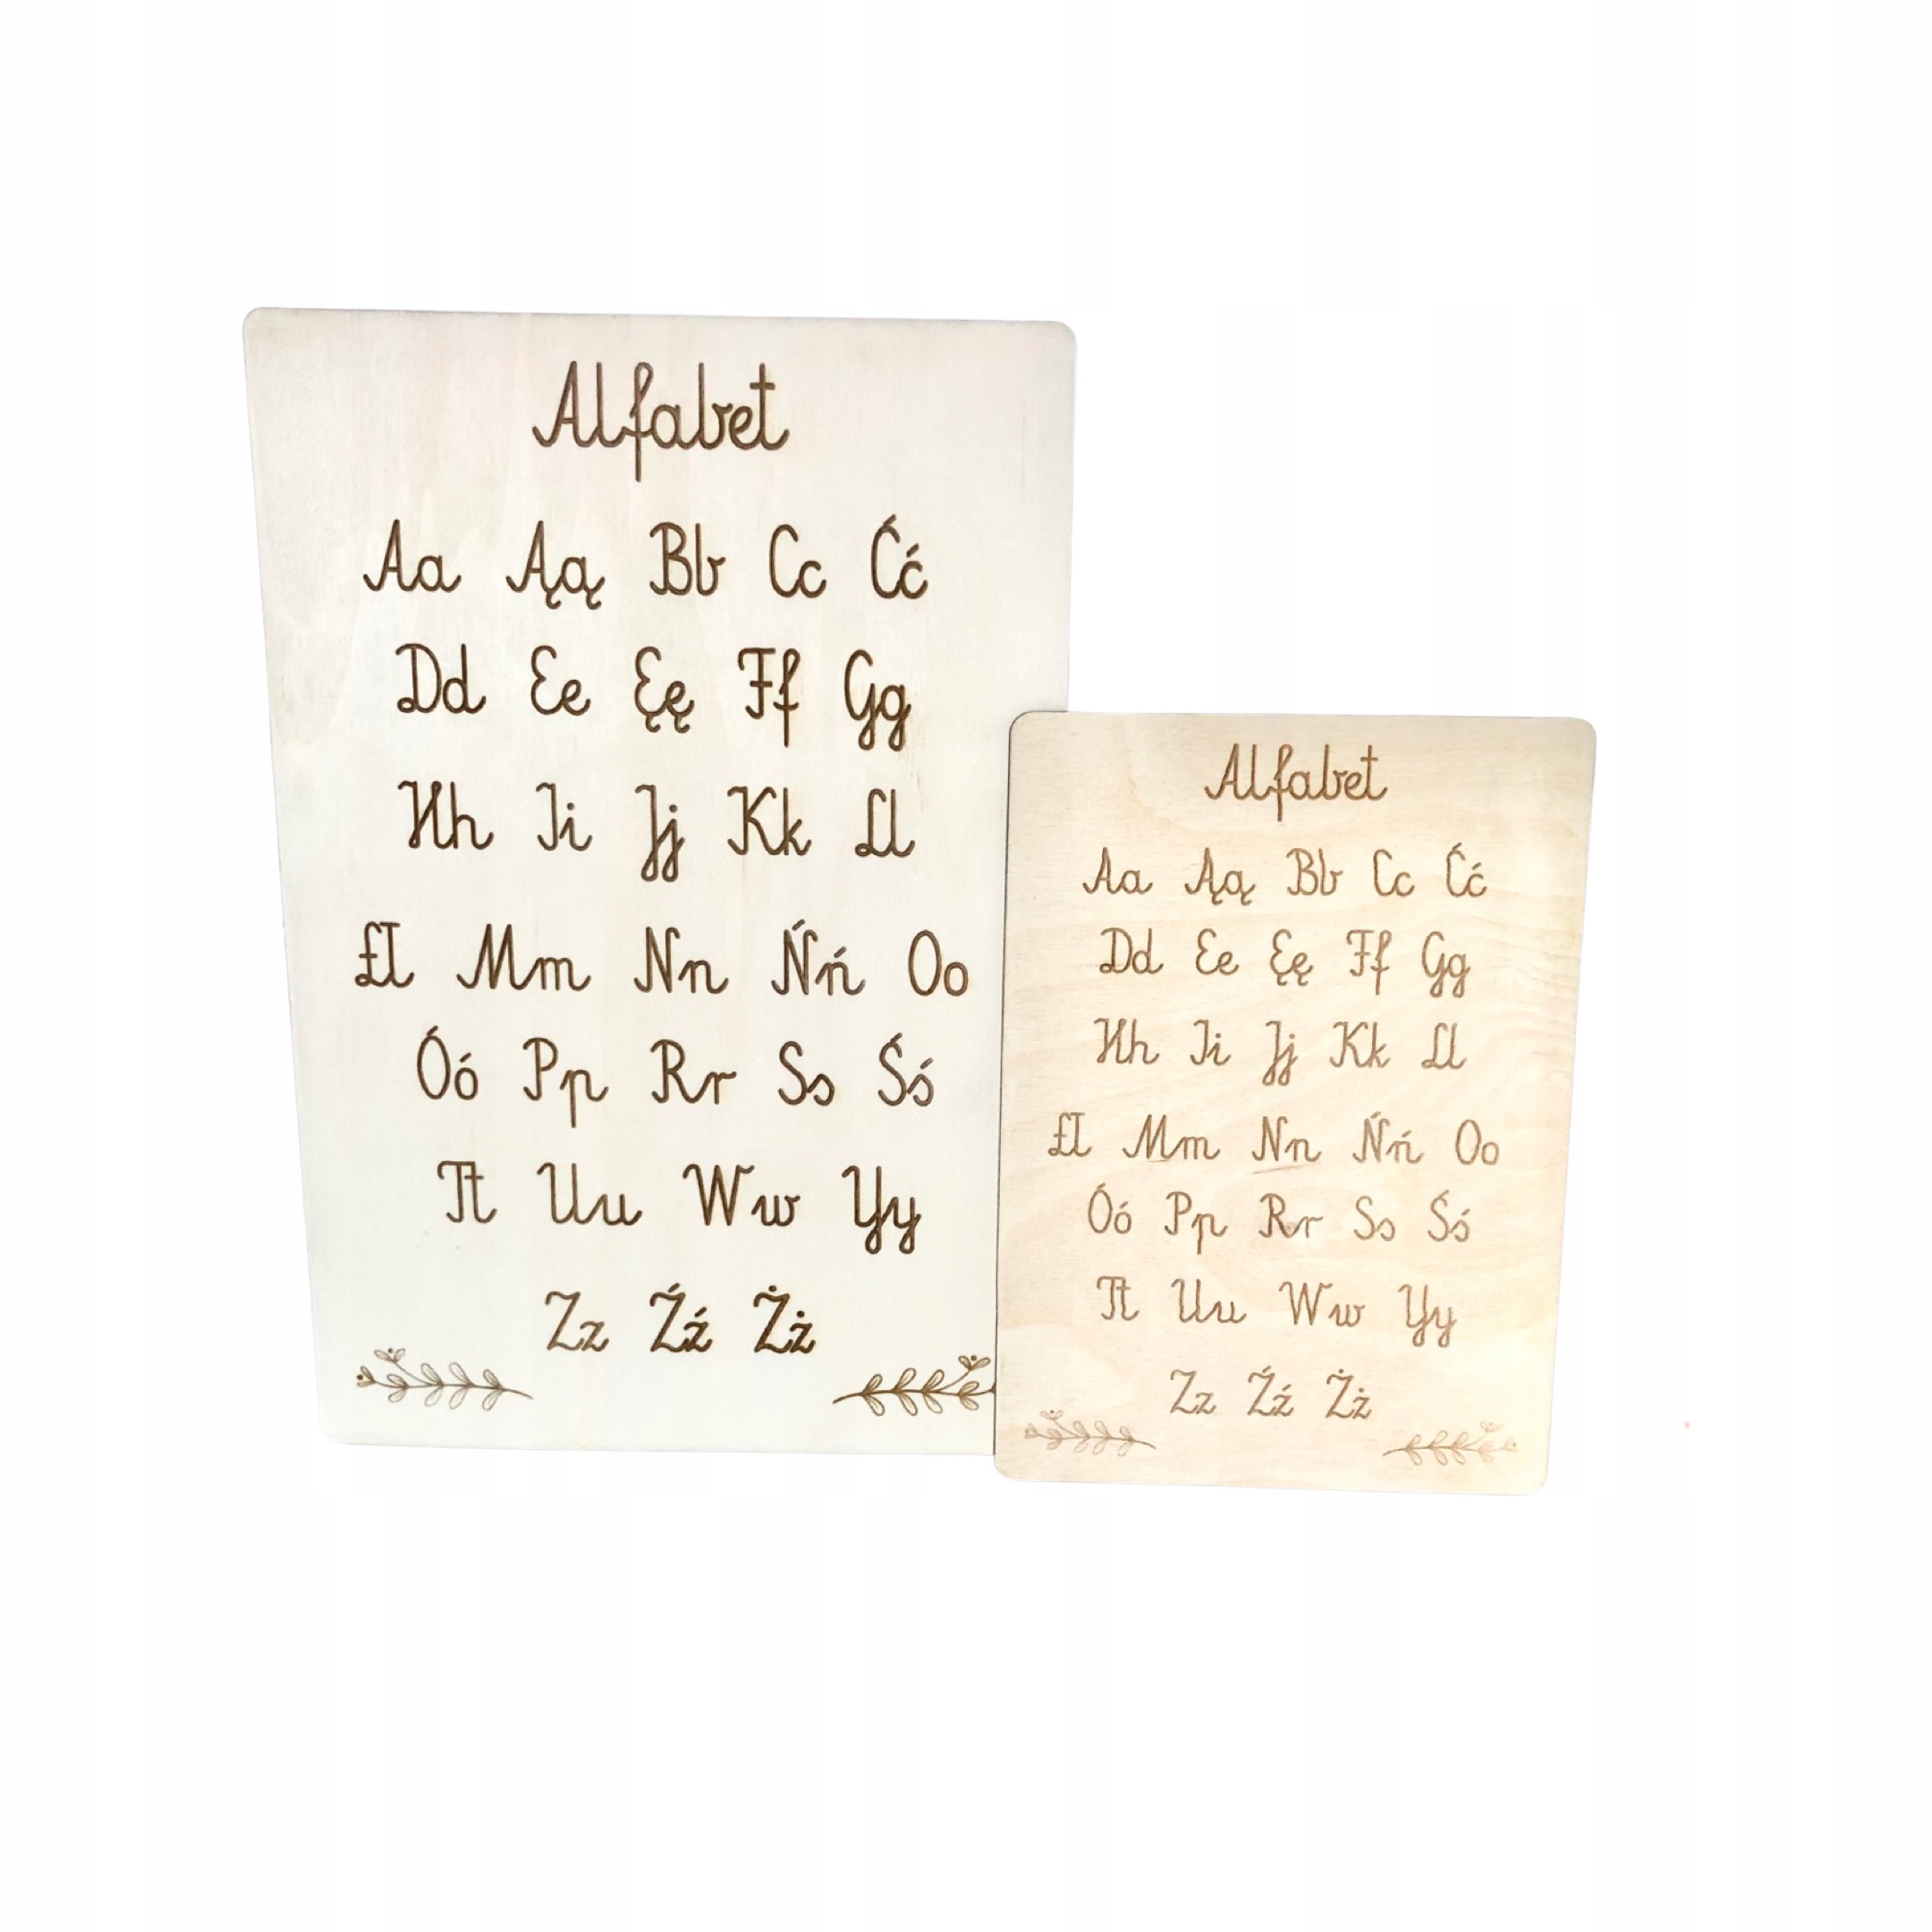 Alfabet
Aa Ąą Bb Cc Ćć
Dd Ee Ęę Ff Gg
Hh Ii Jj Kk Ll
Łł Mm Nn Ńń Oo
Óó Pp Rr Ss Śś
Tt Uu Ww Yy
Zz Źź Żż
Alfabet
Aa Ąą Bb Cc Ćć
Dd Ee Ęę Ff Gg
Hh Ii Jj Kk Ll
Łł Mm Nn Ńń Oo
Óó Pp Rr Ss Śś
Tt Uu Ww Yy
Zz Źź Żż